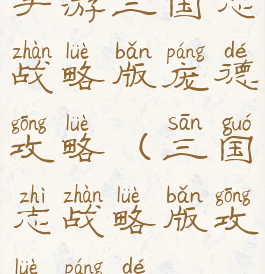 游三国志
zhàn lüè bǎn páng dé
战略版庞德
gōng lüè sān guó
攻略（三国
zhì zhàn lüè bǎn gōng
志战略版攻
lüè páng dé